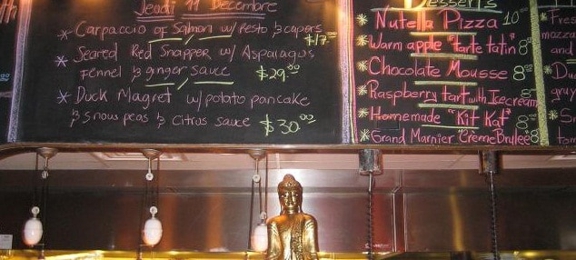 Jeudi 11 Decembre
* Carpaccio of Salmon w/ Pesto & capers
$17.00
* Seared Red Snapper w/ Asparagus
fennel & ginger sauce $29.00
* Duck Magret w/ potato pancake
& snow peas & Citrus sauce $30.00
Desserts
* Nutella Pizza 10
* Warm apple tarte tatin 8
* Chocolate Mousse 8
* Raspberry tart with Icecream
* Homemade "Kit Kat" 8
* Grand Marnier Crème Brulee 8